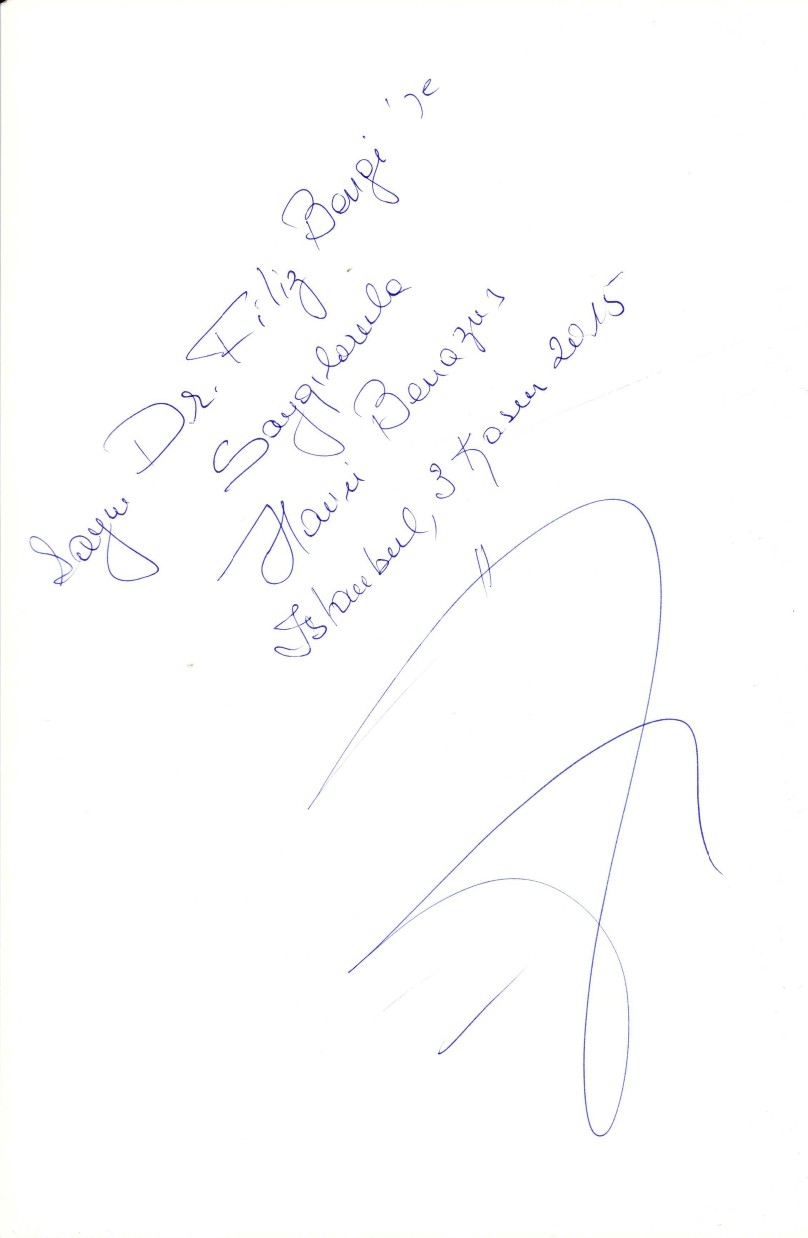 Sayın Dr. Filiz Bengi'ye
Saygılarımla
Hanri Benazus
İstanbul, 3 Kasım 2015